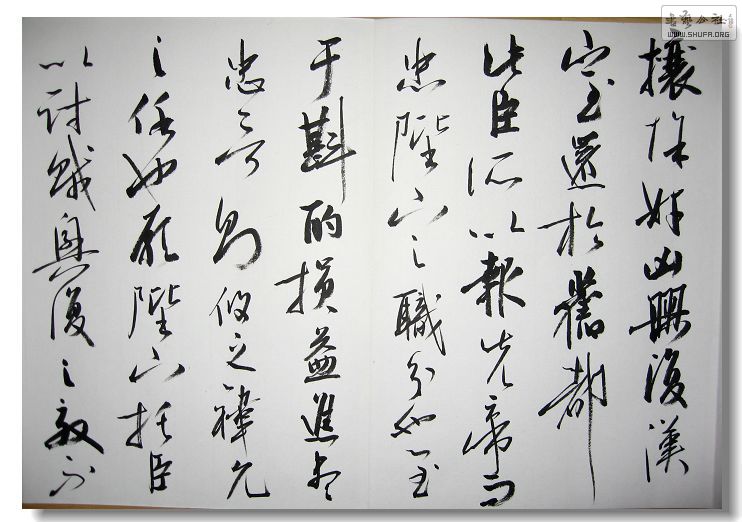 攘除奸凶興復漢
室還於舊都
此臣所以報先帝而
忠陛下之職分也至
于斟酌損益進盡
忠言則攸之禕允
之任也願陛下托臣
以討賊興復之效不
書藝公社
WWW.SHUFA.ORG